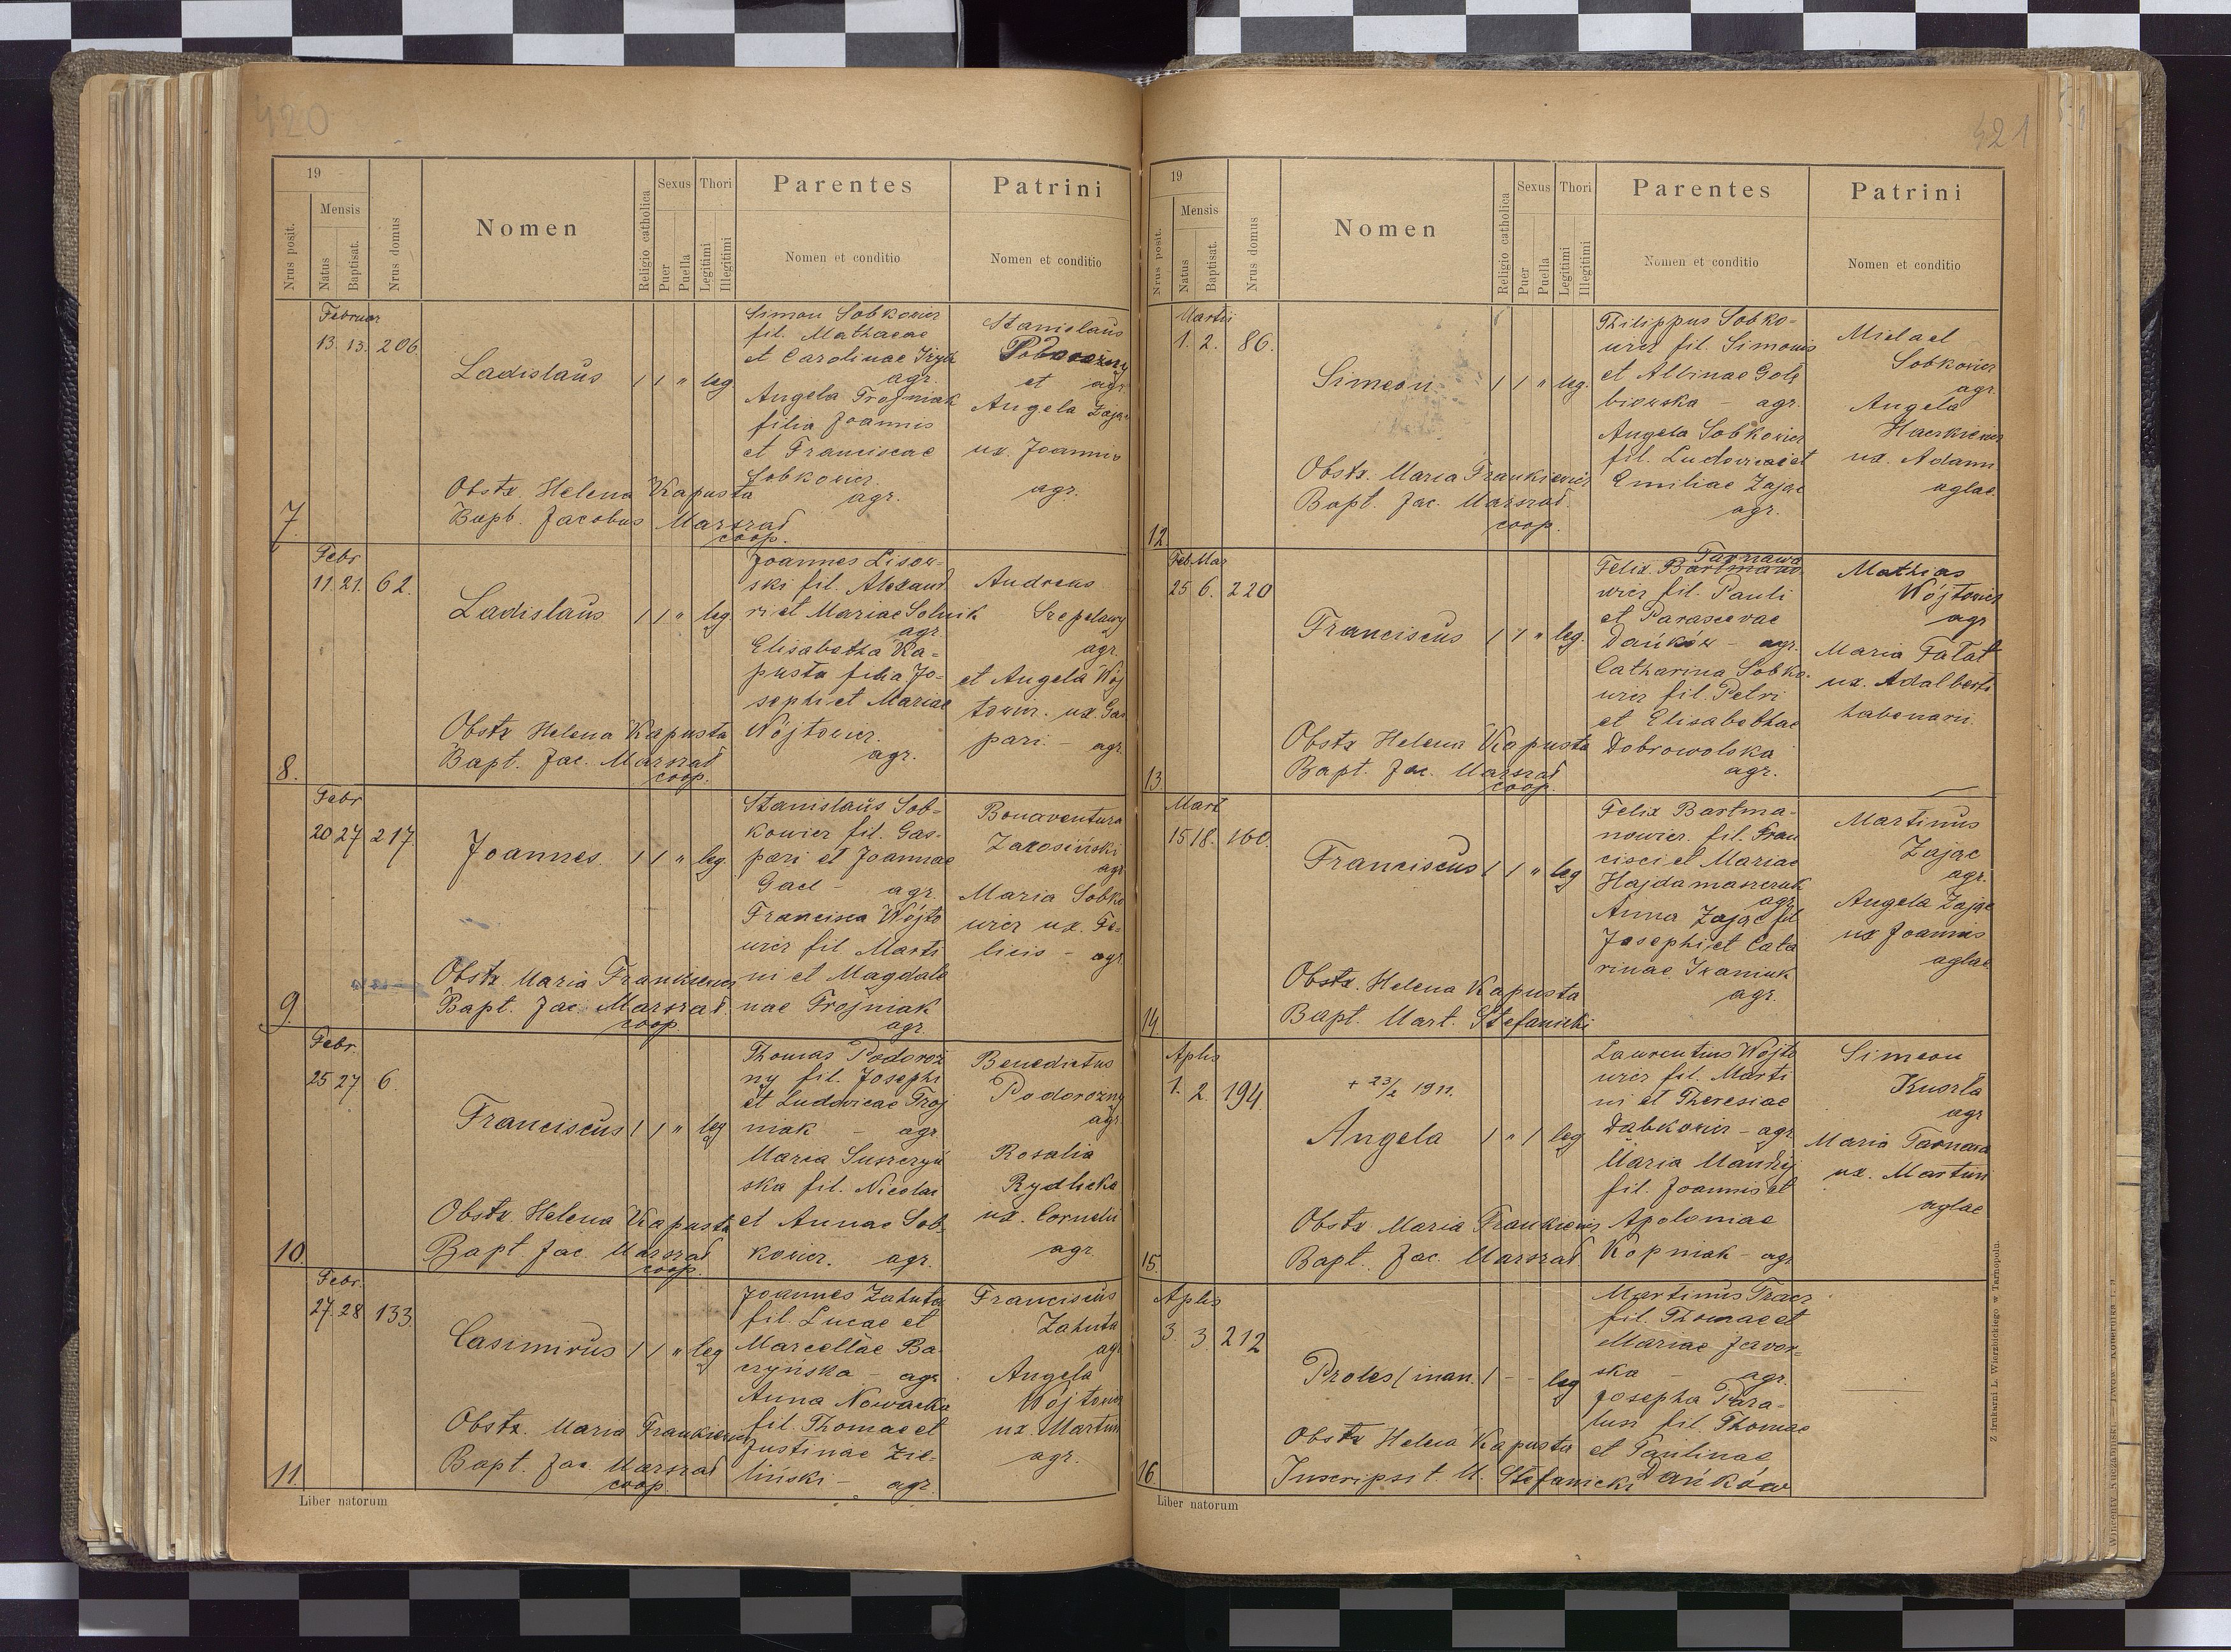 420
19
Mensis
Nrus posit.
Natus
Baptisat.
Nrus domus
Nomen
Religio catholica
Sexus
Puer
Puella
Thori
Legitimi
Illegitimi
Parentes
Nomen et conditio
Patrini
Nomen et conditio
Februar
13. 13. 206.
Ladislaus 1 1 " leg
Simon Sobkowicz
fil. Mathaeae
et Carolinae
agr.
Angela Trojniak
filia Joannis
et Franciscae
Sobkowicz.
agr.
Stanislaus
Podorożny
et agr.
Angela Zając
ux. Joannis
agr.
Obstx. Helena Kapusta
Bapt. Jacobus Marszał
coop.
7.
Febr
11. 21. 62.
Ladislaus 1 1 " leg
Joannes Lisow-
ski fil. Alexand
ri et Mariae Solnik
agr
Elisabetha Ka-
pusta filia Jo-
sephi et Mariae
Wójtowicz.
agr.
Andreas
Szepelawy
agr.
et Angela Wój
towicz. ux. Gas
pari. - agr.
Obstx Helena Kapusta
Bapt. Jac. Marszał
coop.
8.
Febr
20 27 217.
Joannes. 1 1 " leg.
Stanislaus Sob-
kowicz fil. Gas-
pari et Joannae
Gacl - agr.
Francisca Wójto
wicz fil. Marti
ni et Magdale
nae Trojniak
agr.
Bonaventura
Zarosiński
agr
Maria Sobko
wicz ux. Fe-
licis - agr.
Obstx Maria Frankiewicz
Bapt. Jac. Marszał.
coop
9.
Febr.
25 27 6.
Franciscus 1 1 " leg
Thomas Podoroż
ny fil. Josephi
et Ludovicae Troj
niak - agr
Maria Suszczyń
ska fil. Nicolai
et Annae Sob-
kowicz. agr.
Benedictus
Podorożny
agr
Rosalia
Rydlicka
ux. Cornelii
agr.
Obstx. Helena Kapusta
Bapt. Jac. Marszał
coop.
10.
Febr.
27. 28 133
Casimirus 1 1 " leg
Joannes Zahuta
fil. Lucae et
Marcellae Ba-
czyńska - agr
Anna Nowacka
fil. Thomae et
Justinae Zie-
liński - agr.
Franciscus
Zahuta
agr
Angela
Wójtowicz
ux. Martini
agr.
Obstx. Maria Frankiewicz
Bapt. Jac. Marszał
coop.
11.
Liber natorum
421
19
Mensis
Nrus posit.
Natus
Baptisat.
Nrus domus
Nomen
Religio catholica
Sexus
Puer
Puella
Thori
Legitimi
Illegitimi
Parentes
Nomen et conditio
Patrini
Nomen et conditio
Martii
1. 2. 86.
Simeon 1 1 " leg.
Philippus Sobko-
wicz fil. Simonis
et Albinae Golę
biowska - agr.
Angela Sobkowicz
fil. Ludovicae et
Emiliae Zając
agr.
Michael
Sobkowicz
agr.
Angela
ux. Adami
aglae.
Obstx. Maria Frankiewicz
Bapt. Jac. Marszał.
coop.
12.
Feb. Mar
25 6. 220
Franciscus 1 1 " leg.
Tarnawa
Felix Bartmano-
wicz fil. Pauli
et Parascevae
Dańków - agr.
Catharina Sobko-
wicz fil Petri
et Elisabethae
Dobrowolska
agr.
Mathias
Wójtowicz
agr
Maria Fałat
ux. Adalberti
tabenarii.
Obstx Helena Kapusta
Bapt. Jac. Marszał
coop.
13.
Mart
15 18. 160.
Franciscus 1 1 " leg
Felix Bartma-
nowicz. fil. Fran
cisci et Mariae
Hajdamaszczuk
agr.
Anna Zając fil
Josephi et Cata
rinae Iwaniuk
agr.
Martinus
Zając
agr.
Angela Zając
ux Joannis
aglae
Obstx. Helena Kapusta
Bapt. Mart. Stefanicki
14.
Aplis
1. 2. 194.
+ 23/2 1911.
Angela 1 " 1 leg
Laurentius Wójto
wicz fil. Marti
ni et Theresiae
Dabkowicz - agr
Maria Maudzij
fil. Joannis et
Apoloniae
Kopniak - agr
Simeon
Kuszła
agr
Maria Tarnawa
ux. Martini
aglae
Obstx Maria Frankiewicz
Bapt. Jac. Marszał
15.
Aplis
3. 3. 212
Proles (inan. 1 - - leg
Martinus Tracz
fil. Thomae et
Mariae Jawor-
ska - agr.
Josepha Para-
lusz fil. Thomae
et Paulinae
Dańków
Obstx Helena Kapusta
Inscripsit M. Stefanicki
16
Liber natorum
Z drukarni L. Wierzbickiego w Tarnopolu.